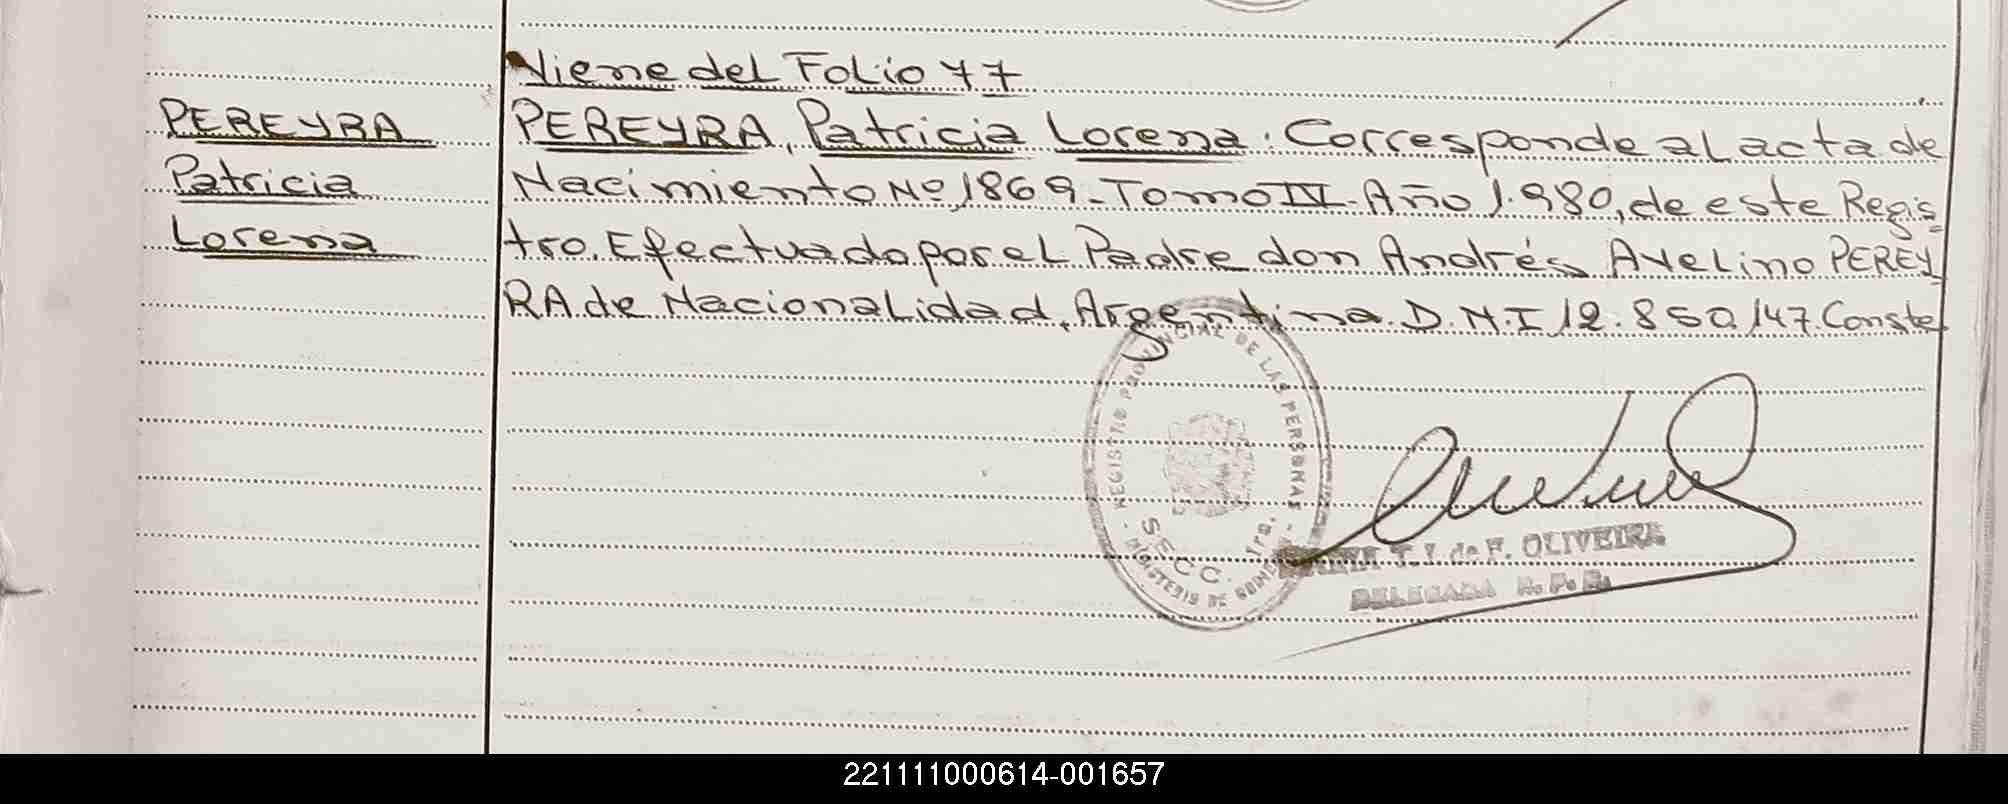 Viene del Folio 77
PEREYRA
Patricia
Lorena
PEREYRA, Patricia Lorena: Corresponde al acta de
Nacimiento Nº 1869-Tomo IV. Año 1.980, de este Regis
tro. Efectuado por el Padre don Andrés Avelino PEREY
RA de Nacionalidad, Argentina. D.N.I 12.850.147. Conste
REGISTRO PROVINCIAL DE LAS PERSONAS
SECC. 1ra.
MINISTERIO DE GOBIERNO
T. I. de F. OLIVEIRA
DELEGADA R. P. P.
221111000614-001657